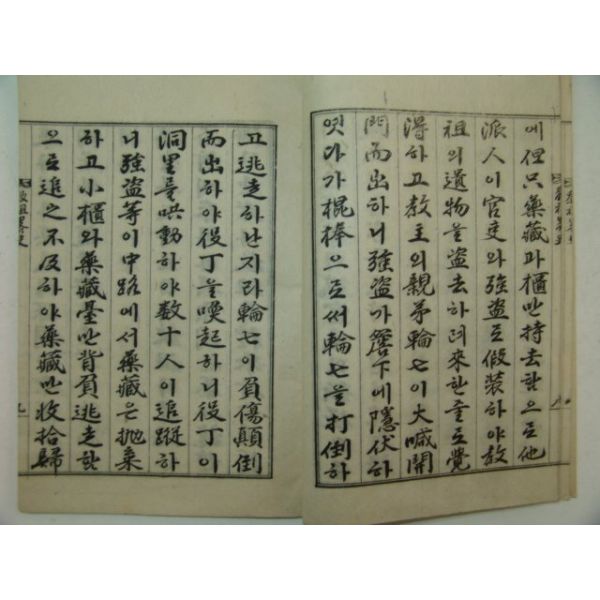 에但只藥藏과櫃만持去함으로他
派人이官吏와強盜로假裝하야敎
祖의遺物을盜去하려來한줄로覺
得하고敎主의親弟輪七이大喊開
門而出하니強盜가簷下에隱伏하
엿다가棍棒으로써輪七을打倒하
고逃走하난지라輪七이負傷顛倒
而出하야役丁을喚起하니役丁이
洞里를哄動하야数十人이追蹤하
니強盜等이中路에서藥藏은抛棄
하고小櫃와藥藏臺만背負逃走한
으로追之不及하야藥藏만收拾歸